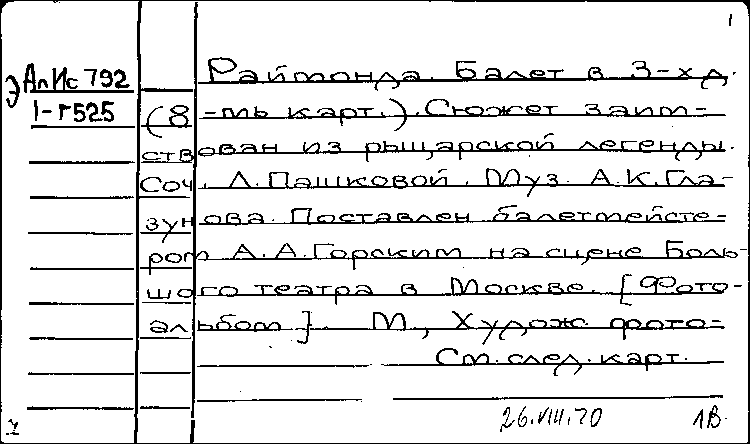 1
Э АлИс 792
1-Г525
Раймонда. Балет в 3-х д.
(8-ть карт.). Сюжет заим-
ствован из рыцарской легенды.
Соч. Л. Пашковой. Муз. А.К. Гла-
зунова. Поставлен балетмейсте-
ром А.А. Горским на сцене Боль-
шого театра в Москве. [Фото-
альбом]. М., Худож. фото-
См. след. карт.
26.VIII.70 1В